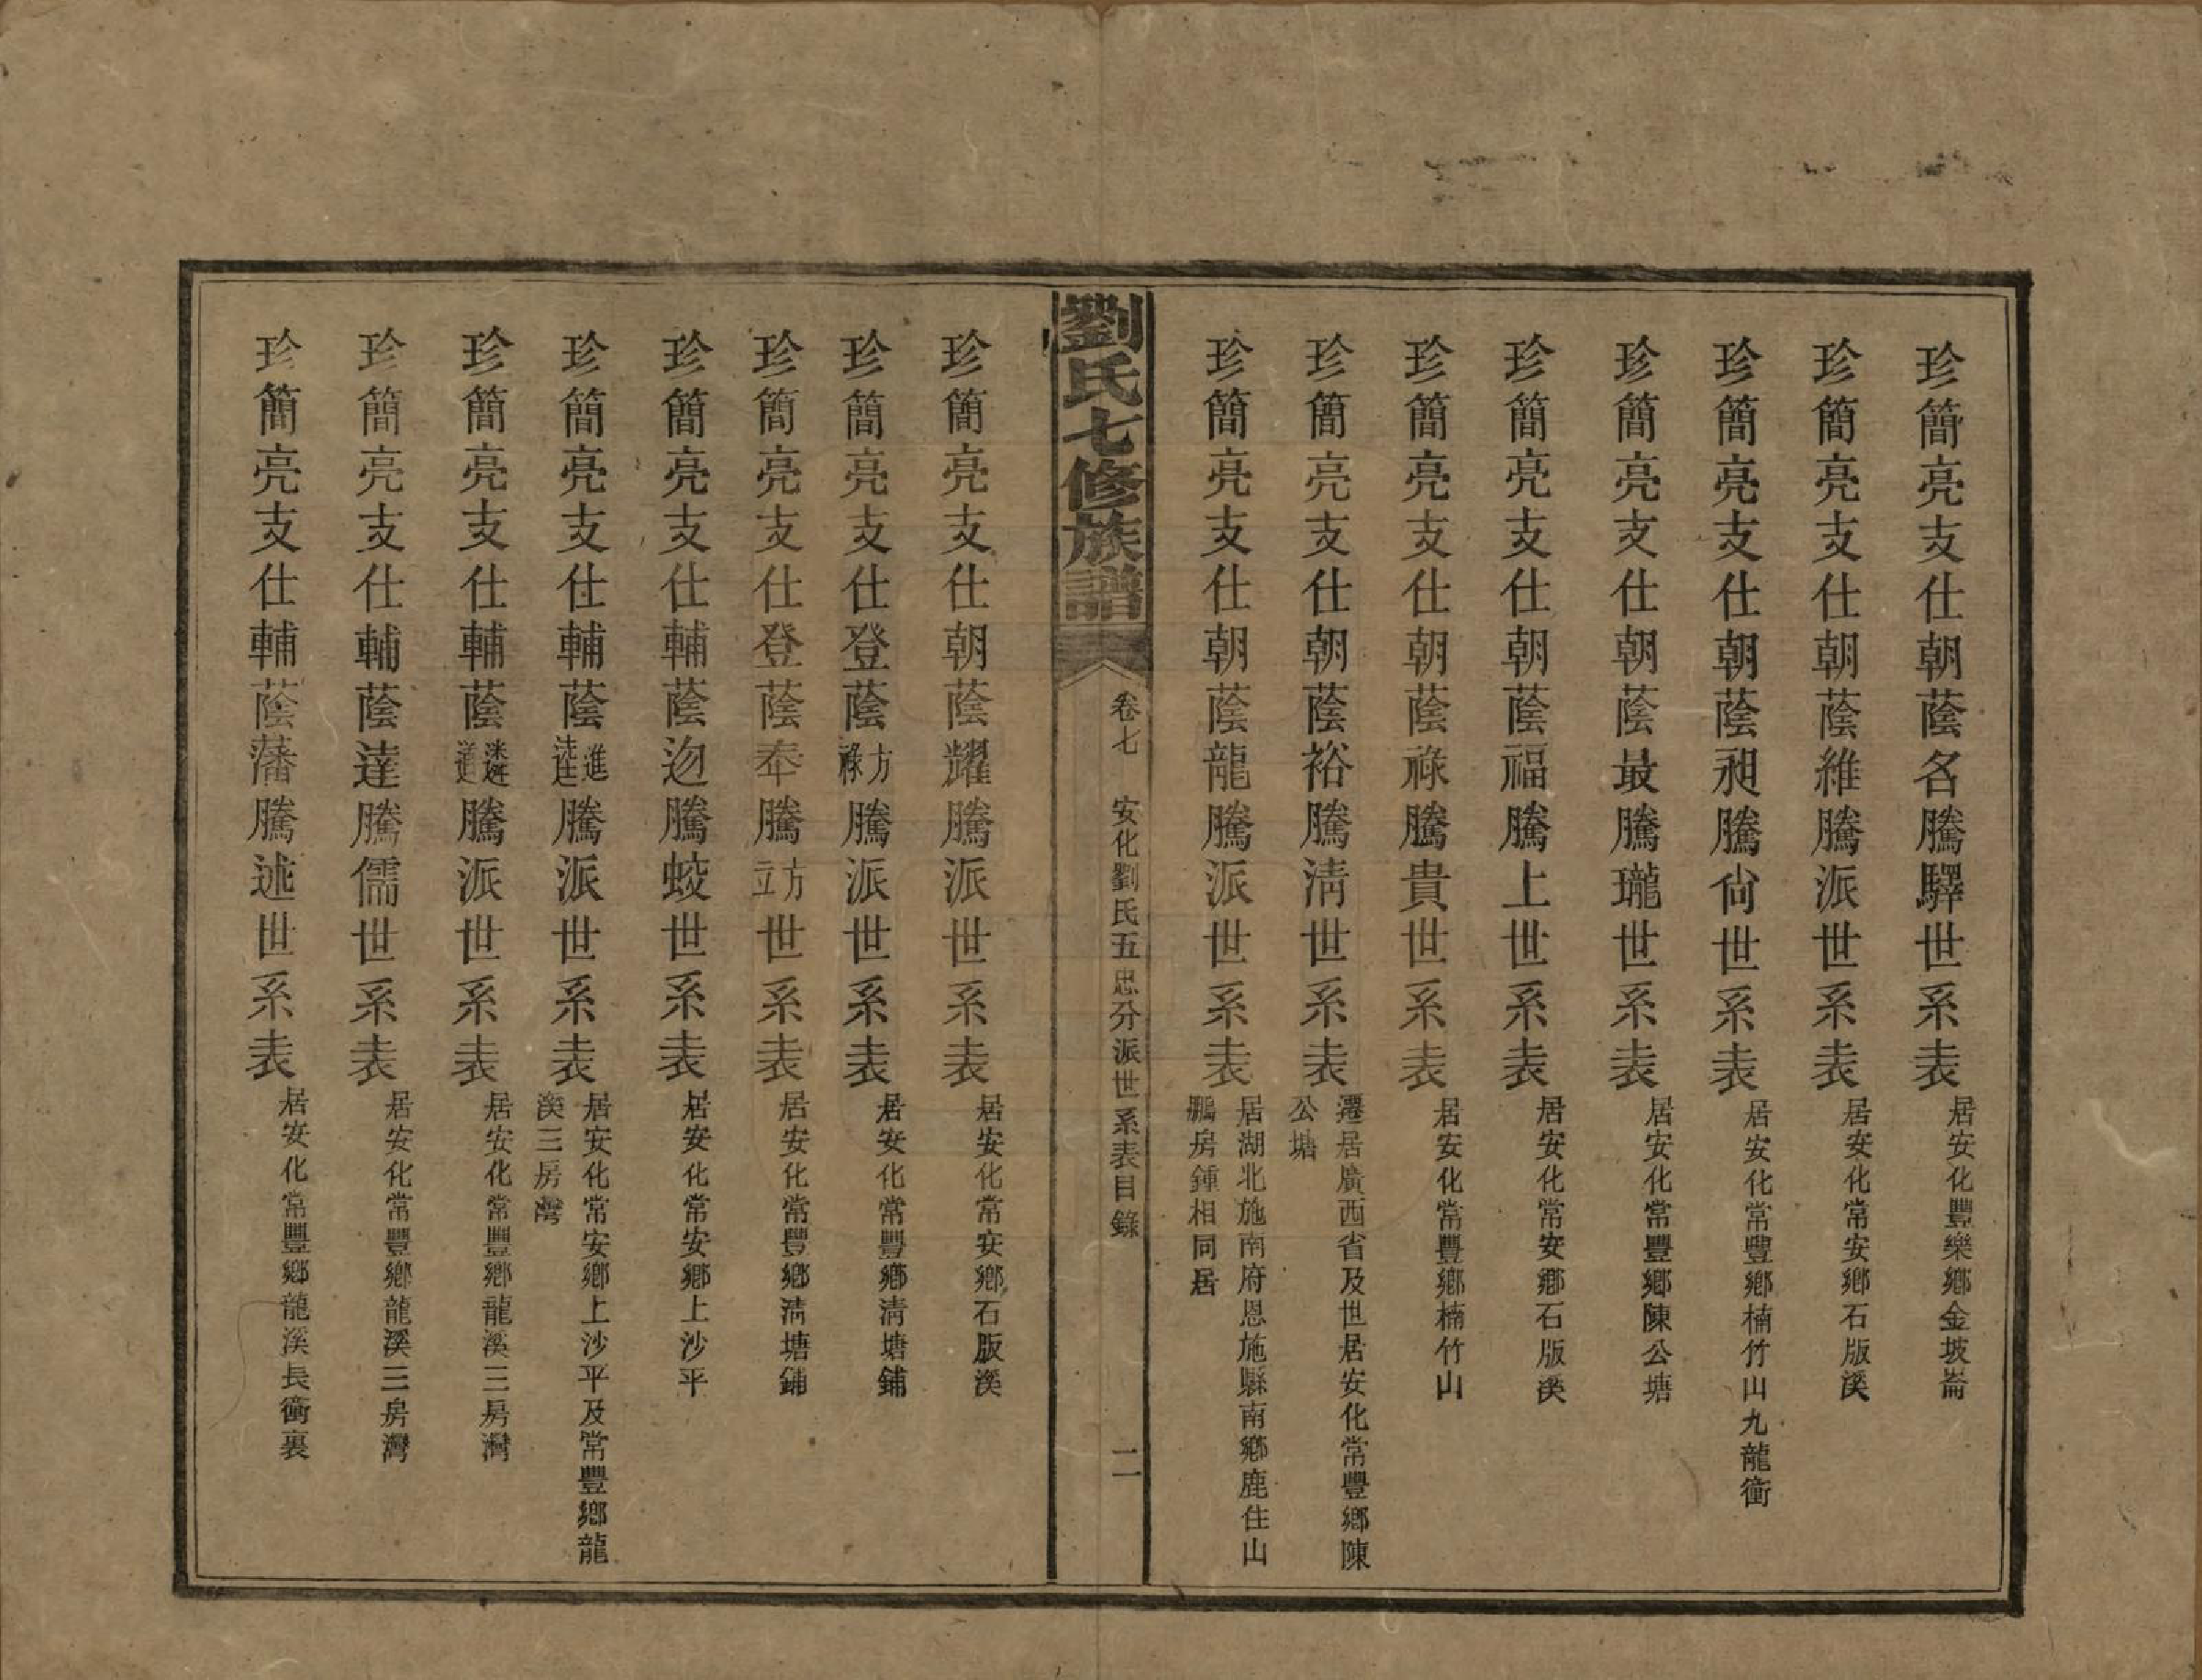 珍簡亮支仕朝蔭名騰驛世系表居安化豐樂鄉金坡崙
珍簡亮支仕朝蔭維騰派世系表居安化常安鄉石版溪
珍簡亮支仕朝蔭昶騰尙世系表居安化常豐鄉楠竹山九龍衝
珍簡亮支仕朝蔭最騰瓏世系表居安化常豐鄉陳公塘
珍簡亮支仕朝蔭福騰上世系表居安化常安鄉石版溪
珍簡亮支仕朝蔭祿騰貴世系表居安化常豐鄉楠竹山
珍簡亮支仕朝蔭裕騰淸世系表遷居廣西省及世居安化常豐鄉陳
公塘
珍簡亮支仕朝蔭龍騰派世系表居湖北施南府恩施縣南鄉鹿住山
鵬房鍾相同居
劉氏七修族譜
卷七 安化劉氏五忠分派世系表目錄
二
珍簡亮支仕朝蔭耀騰派世系表居安化常安鄉石版溪
珍簡亮支仕登蔭方祿騰派世系表居安化常豐鄉淸塘鋪
珍簡亮支仕登蔭奉騰方立世系表居安化常豐鄉淸塘鋪
珍簡亮支仕輔蔭迩騰蛟世系表居安化常安鄉上沙平
珍簡亮支仕輔蔭進騰派世系表居安化常安鄉上沙平及常豐鄉龍
溪三房灣
珍簡亮支仕輔蔭騰派世系表居安化常豐鄉龍溪三房灣
珍簡亮支仕輔蔭達騰儒世系表居安化常豐鄉龍溪三房灣
珍簡亮支仕輔蔭藩騰述世系表居安化常豐鄉龍溪長衝裏